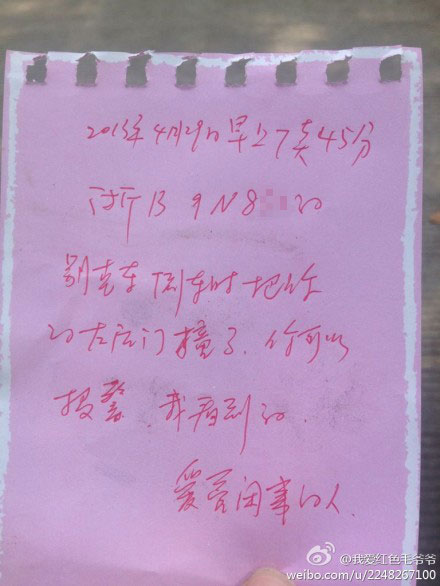 2013年4月29日早上7点45分
浙B 9N8的
别克车倒车时把你
的左后门撞了.你可以
报警 我看到的
爱管闲事的人
@我爱红色毛爷爷
weibo.com/u/2248267100